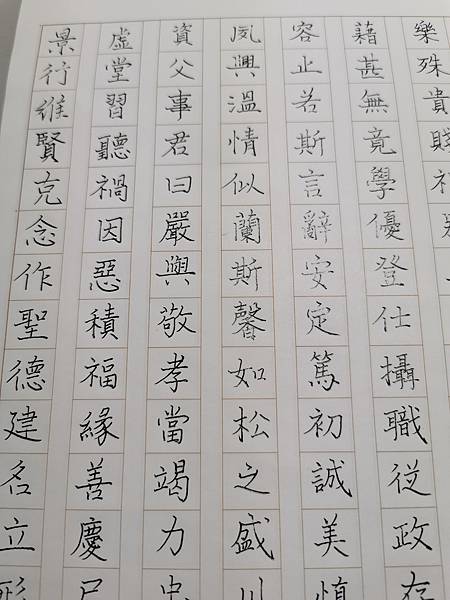 景行維賢克念作聖德建名立形
虛堂習聽禍因惡積福緣善慶尺
資父事君曰嚴與敬孝當竭力忠
夙興溫情似蘭斯馨如松之盛川
容止若斯言辭安定篤初誠美慎
藉甚無竟學優登仕攝職従政存
樂殊貴賤